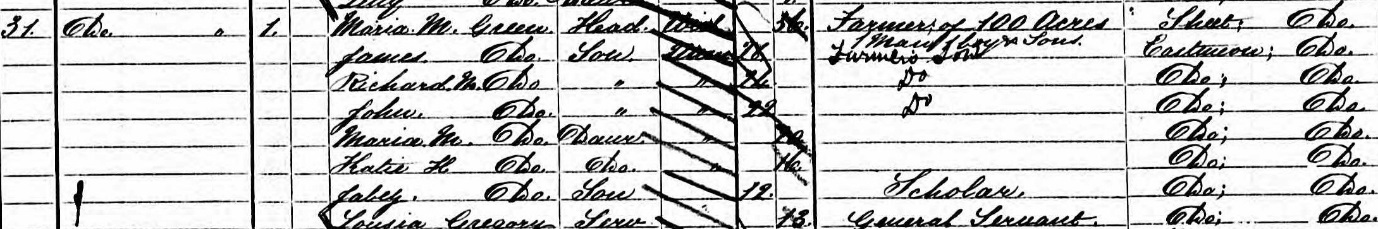 31. Do. " 1. Maria. M. Green Head. Wid 56. Farmer; of 100 Acres Sheet; Do.
Man & boy & Sons.
James. Do. Son. Farmer's Son Eastmeon; Do.
Richard. M. Do " " Do Do; Do.
John. Do. " " 22 Do Do; Do.
Maria M. Do. Daur. " Do; Do.
Katie H Do. Do. " 16. Do; Do.
Do. Son 12. Scholar. Do; Do.
Lousia Gregory Serv " 13. General Servant. Do; Do.